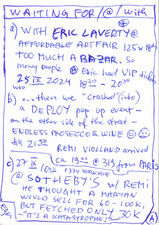 WAITING FOR /@/ with
a) WITH ERIC LAVERTY @
AFFORDABLE ART FAIR 125W 18th
TOO MUCH A BAZAR. So
many people @ Eric had VIP
25 IX 2024 18 30 - 20
b) ... then we "crashed" (into)
a DEPLOY pop up event -
on the other side of the street -
ENDLESS PROSECCO & WINE
till 21 55
REMI VIOLLAND arrived
c) 27 IX ca 19 @ 319 from PARIS
@ SOTHEBY'S w/ REMI
HE THOUGHT A MARYAN
WOULD SELL FOR 60-100K,
BUT FETCHED ONLY 30K
- "IT'S A KATASTROPHE!"